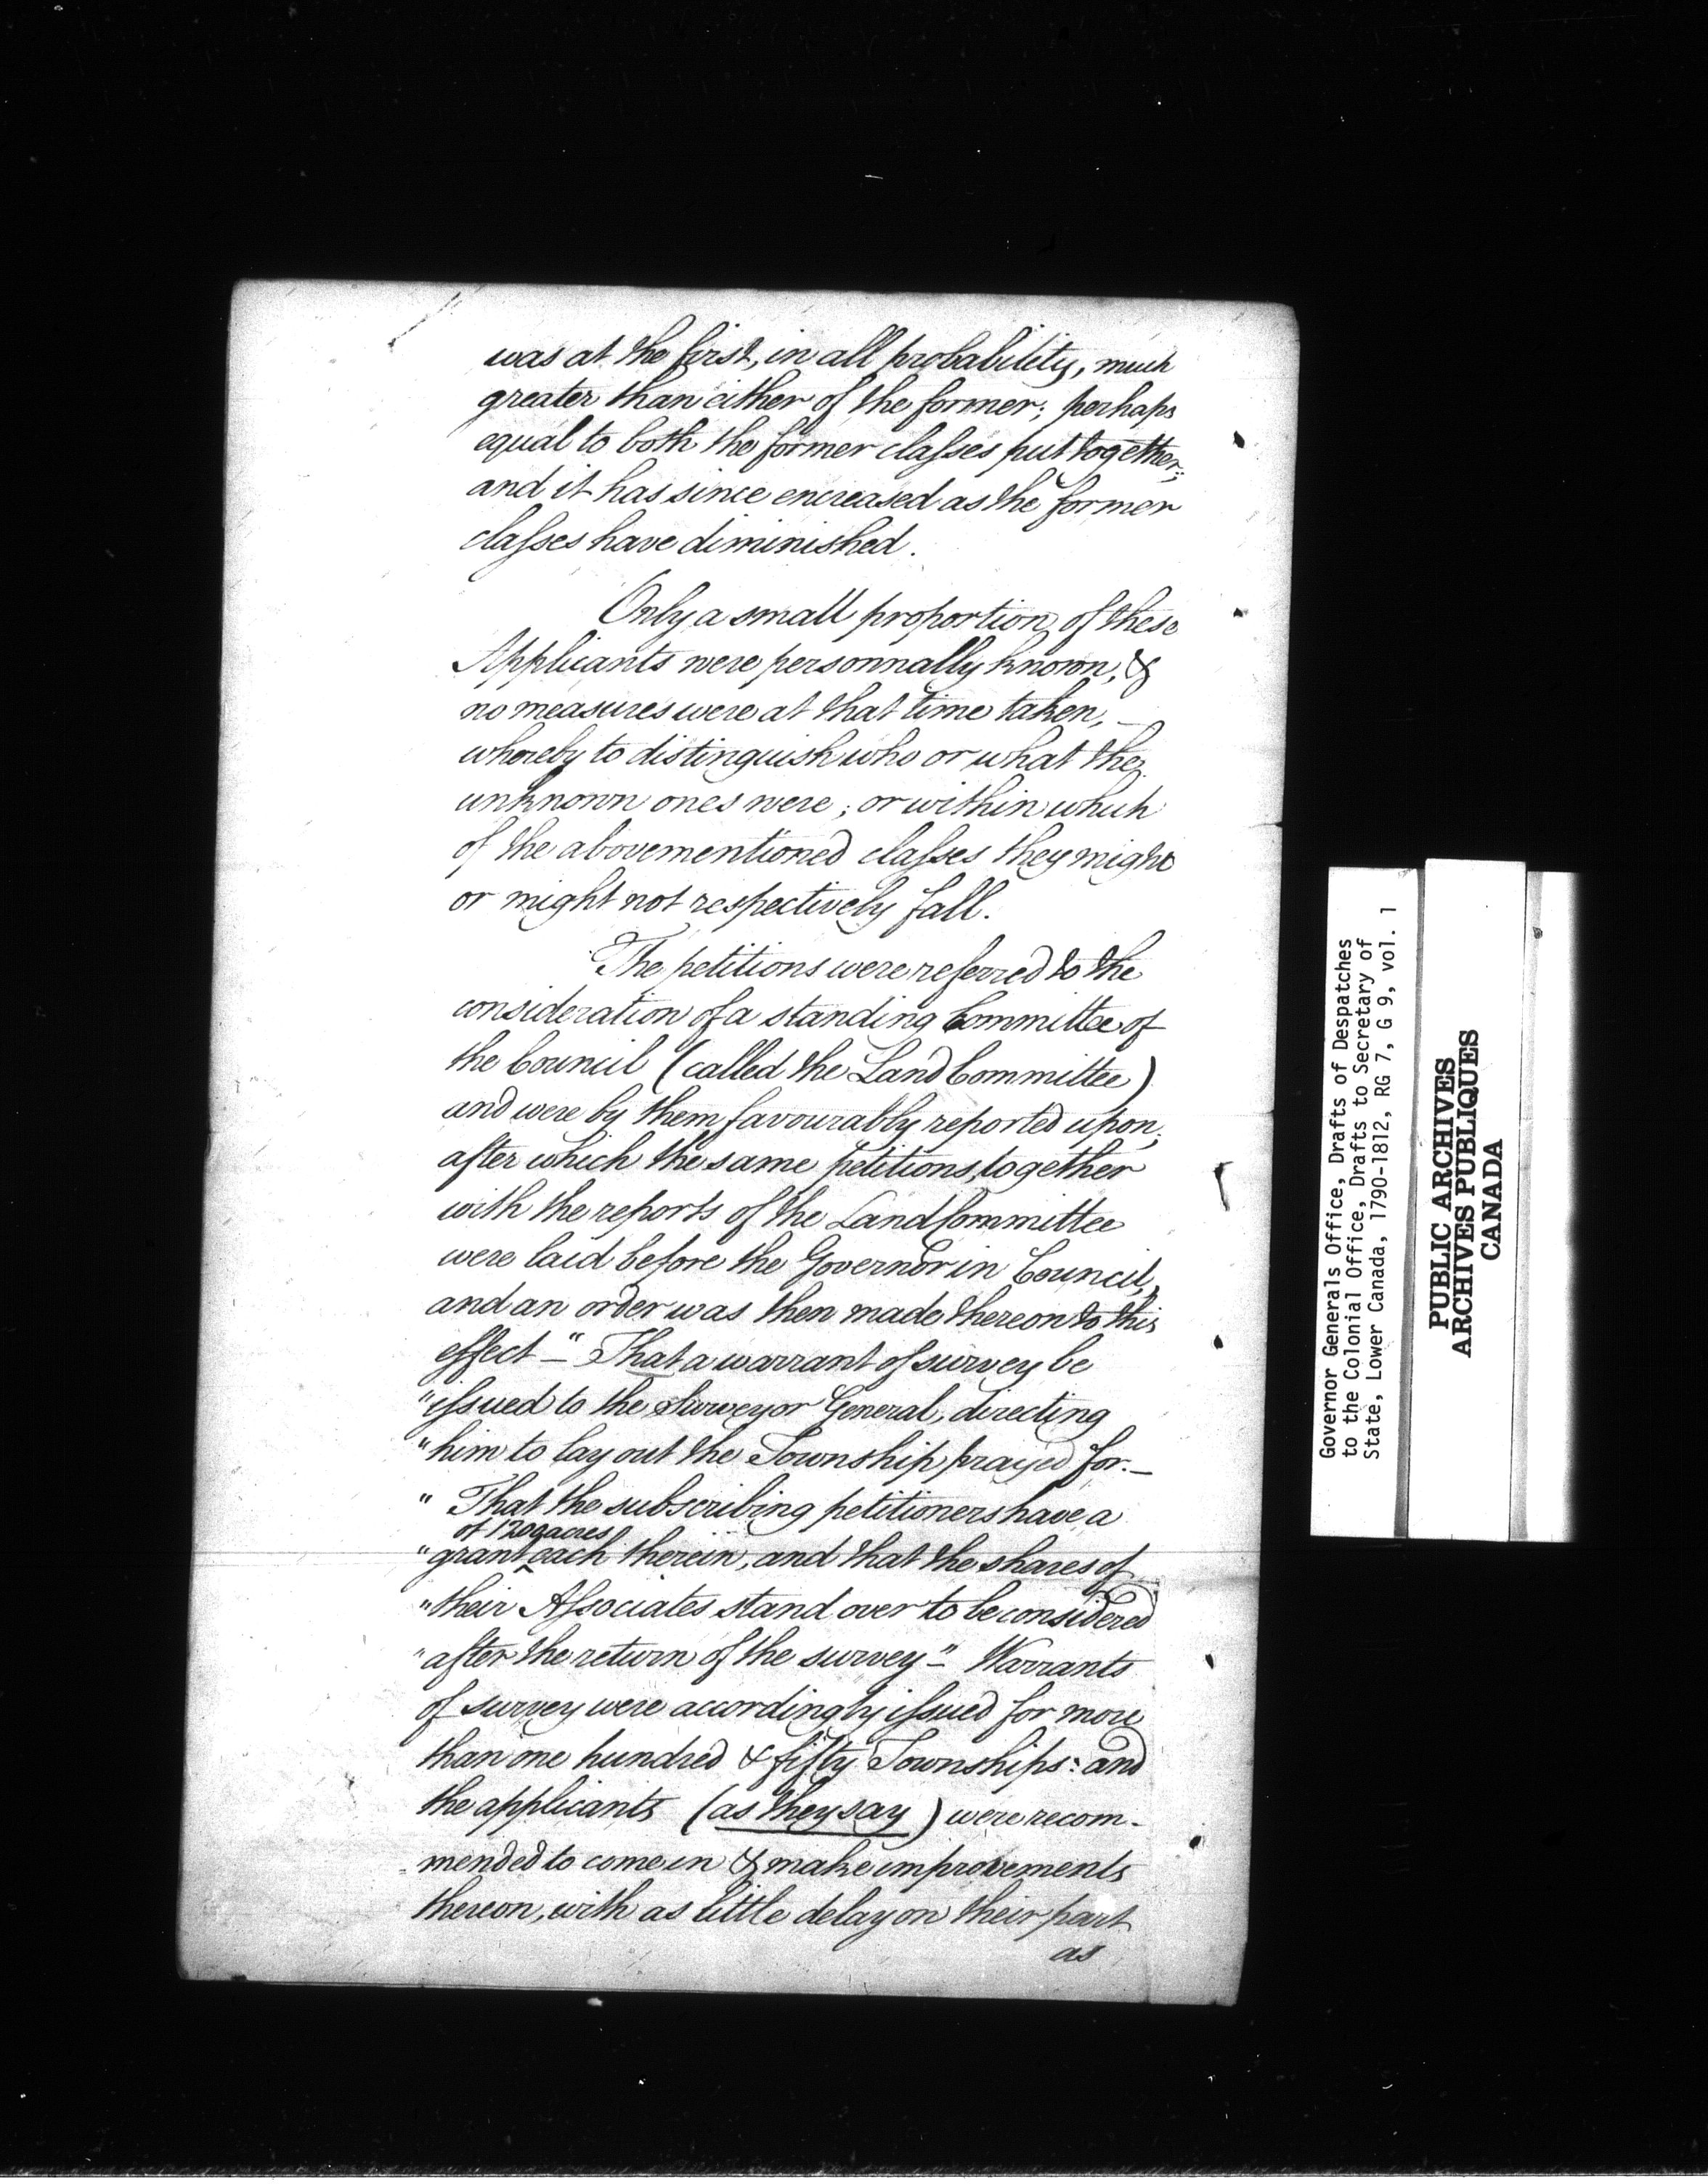 was at the first, in all probability, much
greater than either of the former; perhaps
equal to both the former classes put together;
and it has since encreased as the former
classes have diminished.
Only a small proportion of these
Applicants were personnally known, &
no measures were at that time taken, _
whereby to distinguish who or what the
unknown ones were; or within which
of the abovementioned classes they might
or might not respectively fall.
The petitions were referred to the
consideration of a standing Committee of
the Council (called the Land Committee)
and were by them favourably reported upon;
after which the same petitions, together
with the reports of the Land Committee
were laid before the Governor in Council,
and an order was then made thereon to this
effect _ " That a warrant of survey be
"issued to the Surveyor General, directing
"him to lay out the Township prayed for. _
" That the subscribing petitioners have a
of 1200 acres
"grant ^ each therein, and that the shares of
"their Associates stand over to be considered
"after the return of the survey" _ Warrants
of survey were accordingly issued for more
than one hundred & fifty Townships: and
the applicants (as they say) were recom-
mended to come in & make improvements
thereon, with as little delay on their part
as
Governor Generals Office, Drafts of Despatches
to the Colonial Office, Drafts to Secretary of
State, Lower Canada, 1790-1812, RG 7, G 9, vol. 1
PUBLIC ARCHIVES
ARCHIVES PUBLIQUES
CANADA